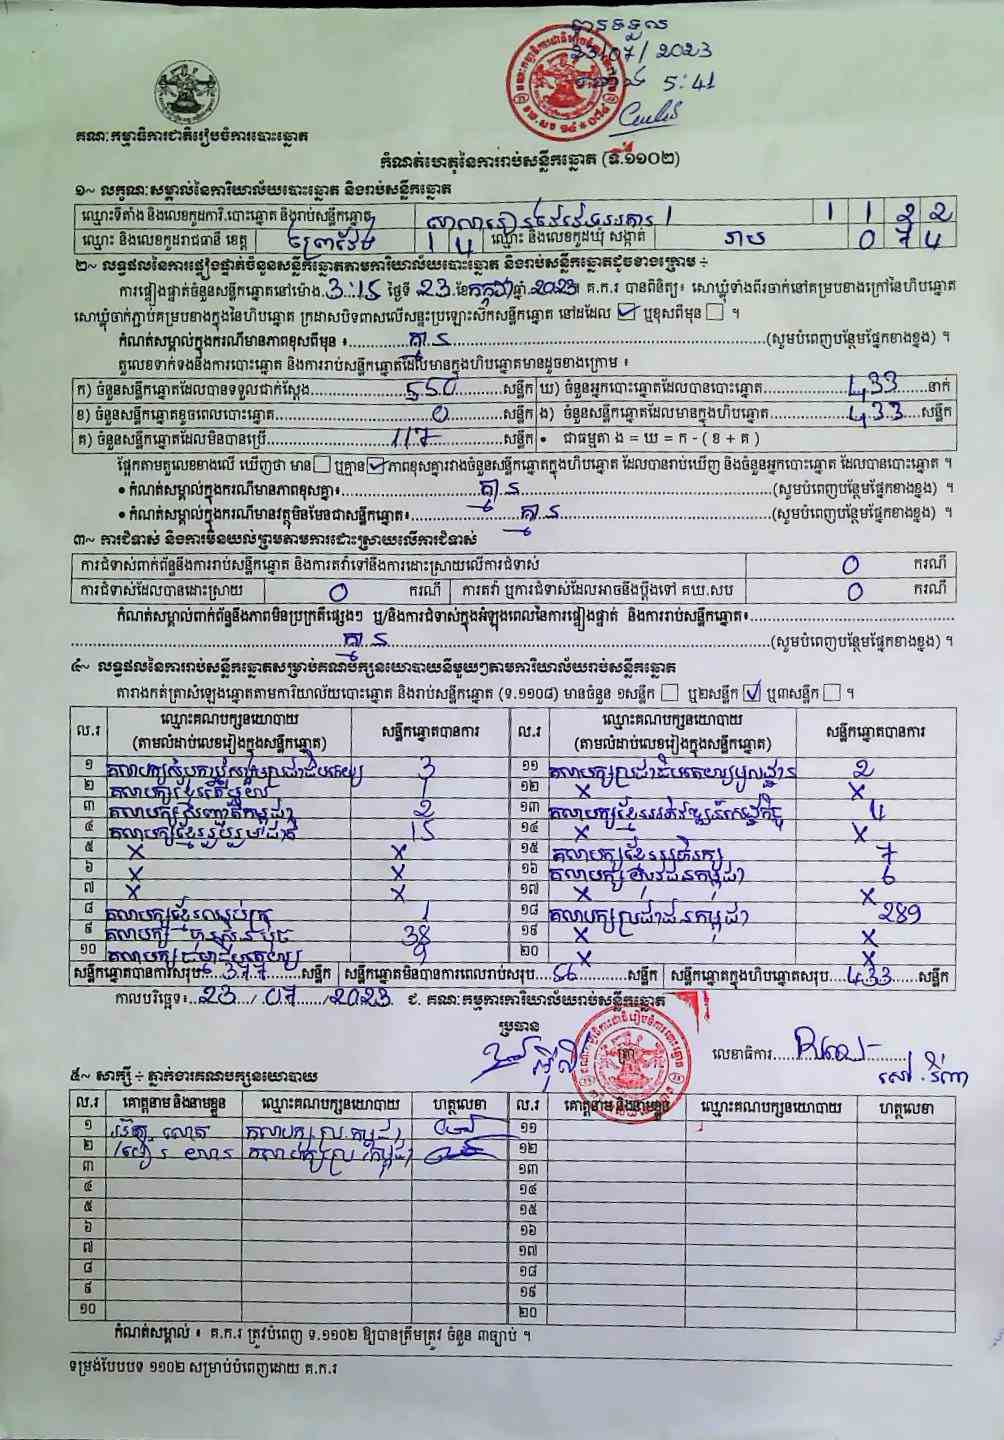 បានទទួល
23/07/2023
ម៉ោង 5:41
គណៈកម្មាធិការជាតិរៀបចំការបោះឆ្នោត
កំណត់ហេតុនៃការរាប់សន្លឹកឆ្នោត (ទ.១១០២)
១~ លក្ខណៈសម្គាល់នៃការិយាល័យបោះឆ្នោត និងរាប់សន្លឹកឆ្នោត
ឈ្មោះទីតាំង និងលេខកូដការិ.បោះឆ្នោត និងរាប់សន្លឹកឆ្នោត 1 1 2 2
ឈ្មោះ និងលេខកូដរាជធានី ខេត្ត ព្រៃវែង 1 4 ឈ្មោះ និងលេខកូដឃុំ សង្កាត់ រាប 0 7 4
២~ លទ្ធផលនៃការផ្ទៀងផ្ទាត់ចំនួនសន្លឹកឆ្នោតតាមការិយាល័យបោះឆ្នោត និងរាប់សន្លឹកឆ្នោតដូចខាងក្រោម ÷
ការផ្ទៀងផ្ទាត់ចំនួនសន្លឹកឆ្នោតនៅម៉ោង 3:15 ថ្ងៃទី 23 ខែកក្កដា ឆ្នាំ 2023។ គ.ក.រ បានពិនិត្យ៖ សោឃ្លុំទាំងពីរចាក់នៅគម្របខាងក្រៅនៃហិបឆ្នោត
សោឃ្លុំចាក់ភ្ជាប់គម្របខាងក្នុងនៃហិបឆ្នោត ក្រដាសបិទពាសលើសន្ទះប្រឡោះសៀកសន្លឹកឆ្នោត នៅដដែល ☑ ឬខុសពីមុន ☐ ។
កំណត់សម្គាល់ក្នុងករណីមានភាពខុសពីមុន ៖ គ្មាន (សូមបំពេញបន្ថែមផ្នែកខាងខ្នង) ។
តួលេខទាក់ទងនឹងការបោះឆ្នោត និងការរាប់សន្លឹកឆ្នោតដែលមានក្នុងហិបឆ្នោតមានដូចខាងក្រោម ៖
ក) ចំនួនសន្លឹកឆ្នោតដែលបានទទួលជាក់ស្តែង 550 សន្លឹក ឃ) ចំនួនអ្នកបោះឆ្នោតដែលបានបោះឆ្នោត 433 នាក់
ខ) ចំនួនសន្លឹកឆ្នោតខូចពេលបោះឆ្នោត 0 សន្លឹក ង) ចំនួនសន្លឹកឆ្នោតដែលមានក្នុងហិបឆ្នោត 433 សន្លឹក
គ) ចំនួនសន្លឹកឆ្នោតដែលមិនបានប្រើ 117 សន្លឹក • ជាធម្មតា ង = ឃ = ក - ( ខ + គ )
ផ្អែកតាមតួលេខខាងលើ ឃើញថា មាន ☐ ឬគ្មាន ☑ ភាពខុសគ្នារវាងចំនួនសន្លឹកឆ្នោតក្នុងហិបឆ្នោត ដែលបានរាប់ឃើញ និងចំនួនអ្នកបោះឆ្នោត ដែលបានបោះឆ្នោត ។
• កំណត់សម្គាល់ក្នុងករណីមានភាពខុសគ្នា៖ គ្មាន (សូមបំពេញបន្ថែមផ្នែកខាងខ្នង) ។
• កំណត់សម្គាល់ក្នុងករណីមានវត្ថុមិនមែនជាសន្លឹកឆ្នោត៖ គ្មាន (សូមបំពេញបន្ថែមផ្នែកខាងខ្នង) ។
៣~ ការជំទាស់ និងការមិនយល់ព្រមតាមការដោះស្រាយលើការជំទាស់
ការជំទាស់ពាក់ព័ន្ធនឹងការរាប់សន្លឹកឆ្នោត និងការតវ៉ាទៅនឹងការដោះស្រាយលើការជំទាស់ 0 ករណី
ការជំទាស់ដែលបានដោះស្រាយ 0 ករណី ការតវ៉ា ឬការជំទាស់ដែលអាចនឹងប្តឹងទៅ គឃ.សប 0 ករណី
កំណត់សម្គាល់ពាក់ព័ន្ធនឹងភាពមិនប្រក្រតីផ្សេងៗ ឬ/និងការជំទាស់ក្នុងអំឡុងពេលនៃការផ្ទៀងផ្ទាត់ និងការរាប់សន្លឹកឆ្នោត៖
គ្មាន (សូមបំពេញបន្ថែមផ្នែកខាងខ្នង) ។
៤~ លទ្ធផលនៃការរាប់សន្លឹកឆ្នោតសម្រាប់គណបក្សនយោបាយនីមួយៗតាមការិយាល័យរាប់សន្លឹកឆ្នោត
តារាងកត់ត្រាសំឡេងឆ្នោតតាមការិយាល័យបោះឆ្នោត និងរាប់សន្លឹកឆ្នោត (ទ.១១០៨) មានចំនួន ១សន្លឹក ☐ ឬ២សន្លឹក ☑ ឬ៣សន្លឹក ☐ ។
ល.រ ឈ្មោះគណបក្សនយោបាយ (តាមលំដាប់លេខរៀងក្នុងសន្លឹកឆ្នោត) សន្លឹកឆ្នោតបានការ ល.រ ឈ្មោះគណបក្សនយោបាយ (តាមលំដាប់លេខរៀងក្នុងសន្លឹកឆ្នោត) សន្លឹកឆ្នោតបានការ
១ 3 ១១ គណបក្សប្រជាធិបតេយ្យមូលដ្ឋាន 2
២ គណបក្សខ្មែរតែមួយ 1 ១២ x x
៣ គណបក្សសញ្ជាតិកម្ពុជា 2 ១៣ គណបក្សខ្មែរអភិវឌ្ឍន៍សេដ្ឋកិច្ច 4
៤ គណបក្សខ្មែររួបរួមជាតិ 15 ១៤ x x
៥ x x ១៥ គណបក្សខ្មែរអភិរក្ស 7
៦ x x ១៦ គណបក្សយុវជនកម្ពុជា 6
៧ x x ១៧ x x
៨ គណបក្សខ្មែរឈប់ក្រ 1 ១៨ គណបក្សប្រជាជនកម្ពុជា 289
៩ គណបក្ស ហ្វ៊ុនស៊ិនប៉ិច 38 ១៩ x x
១០ គណបក្សធម្មាធិបតេយ្យ 9 ២០ x x
សន្លឹកឆ្នោតបានការសរុប 377 សន្លឹក សន្លឹកឆ្នោតមិនបានការពេលរាប់សរុប 56 សន្លឹក សន្លឹកឆ្នោតក្នុងហិបឆ្នោតសរុប 433 សន្លឹក
កាលបរិច្ឆេទ៖ 23 / 07 / 2023 ជ. គណៈកម្មការការិយាល័យរាប់សន្លឹកឆ្នោត
ប្រធាន
លេខាធិការ
៥~ សាក្សី ÷ ភ្នាក់ងារគណបក្សនយោបាយ
ល.រ គោត្តនាម និងនាមខ្លួន ឈ្មោះគណបក្សនយោបាយ ហត្ថលេខា ល.រ គោត្តនាម និងនាមខ្លួន ឈ្មោះគណបក្សនយោបាយ ហត្ថលេខា
១ គណបក្សប្រ.កម្ពុជា ១១
២ គណបក្សប្រ.កម្ពុជា ១២
៣ ១៣
៤ ១៤
៥ ១៥
៦ ១៦
៧ ១៧
៨ ១៨
៩ ១៩
១០ ២០
កំណត់សម្គាល់ ៖ គ.ក.រ ត្រូវបំពេញ ទ.១១០២ ឱ្យបានត្រឹមត្រូវ ចំនួន ៣ច្បាប់ ។
ទម្រង់បែបបទ ១១០២ សម្រាប់បំពេញដោយ គ.ក.រ